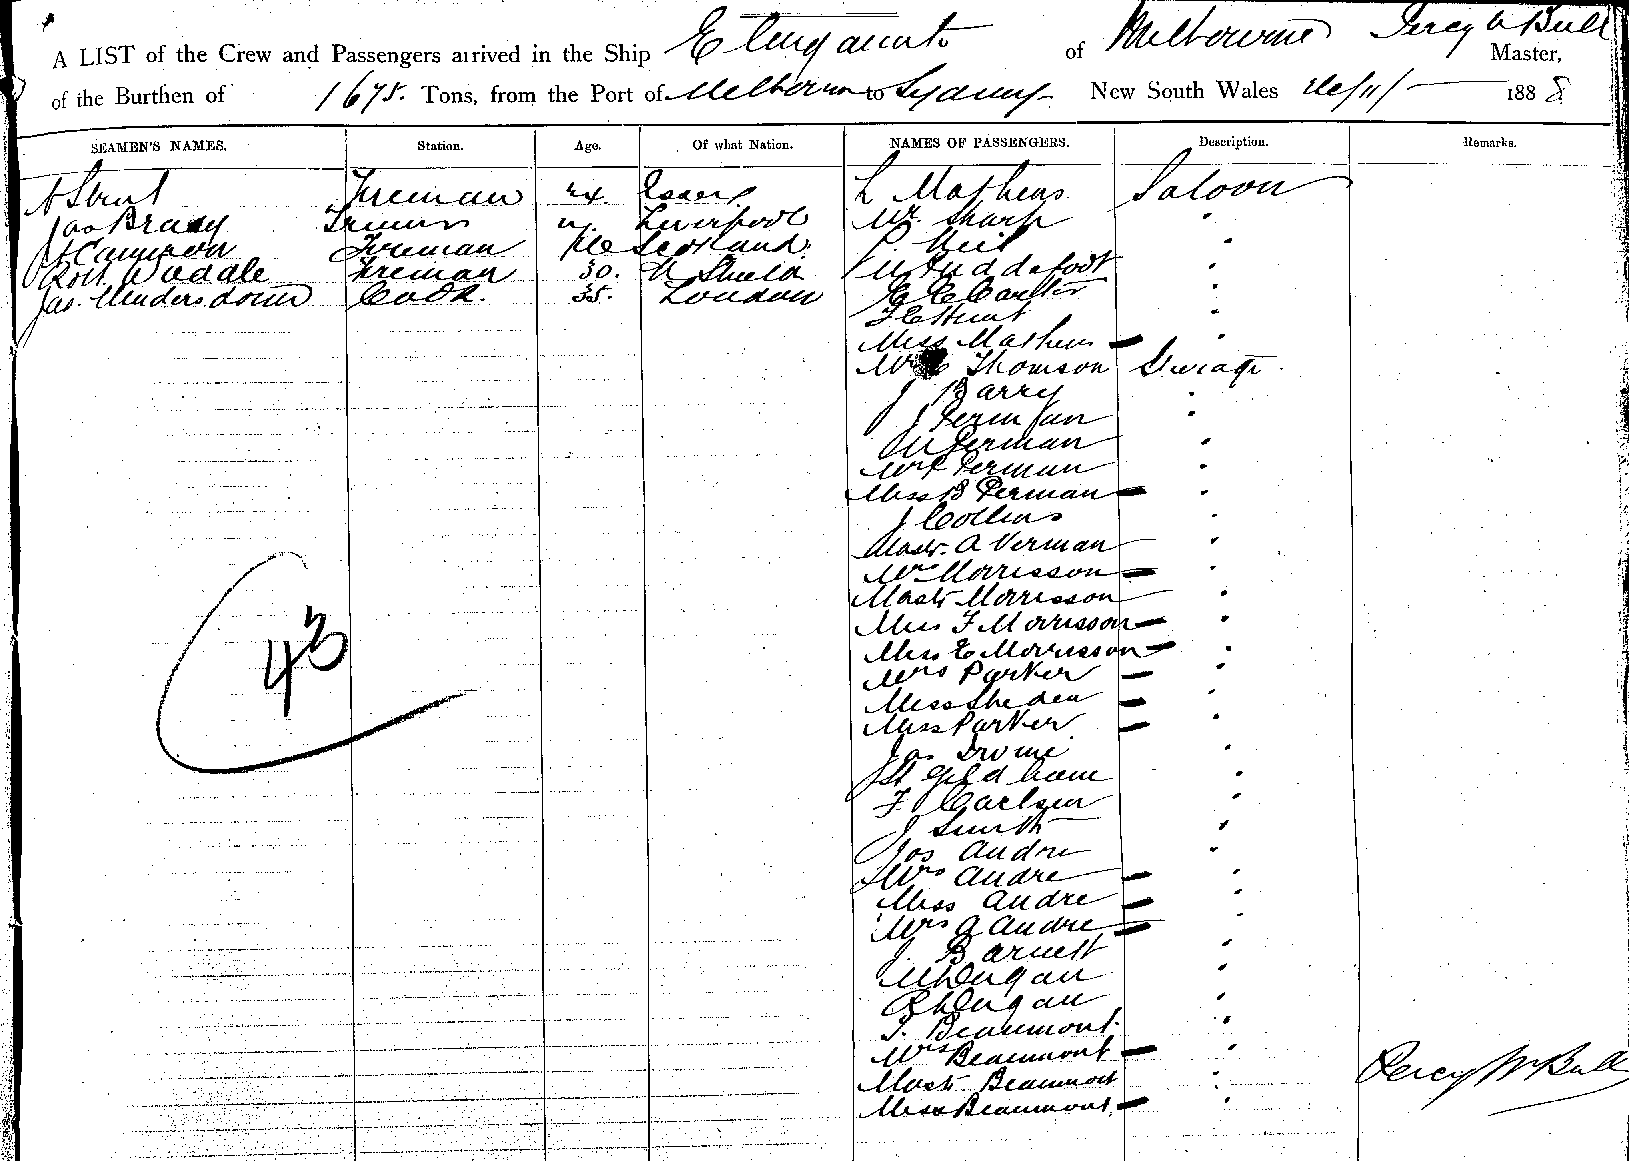 A LIST of the Crew and Passengers arrived in the Ship of Melbourne Percy W Bull Master,
of the Burthen of 1675. Tons, from the Port of Melbourne to Sydney New South Wales 1888
SEAMEN'S NAMES. Station. Age. Of what Nation. NAMES OF PASSENGERS. Description. Remarks.
Fireman L Mathews Saloon
Jas Brady Trimmer Liverpool Mr Sharp "
Cameron Fireman Scotland "
Robt Waddle Fireman 30. N Shield W Puddefoot "
Jas Hendersdown Cook. 35. London C E Carlter "
F E Hunt "
Miss Mathews "
Thomson Steerage
J Barry "
J Perman "
M Perman "
Perman "
Miss B Perman "
J Collins "
Mastr. A Verman "
Mrs Morrisson "
Mastr Morrisson "
Miss F Morrisson "
Miss E Morrisson "
Mrs Parker "
Miss Sheden "
Miss Parker "
Jas Irvine "
"
F Carlsen "
J Smith "
Jos Andre "
Mrs Andre "
Miss Andre "
Mrs A Andre "
J. Barnett "
Dugan "
Dugan "
T. Beaumont "
Mrs Beaumont "
Mastr Beaumont "
Miss Beaumont "
43
Percy W Bull